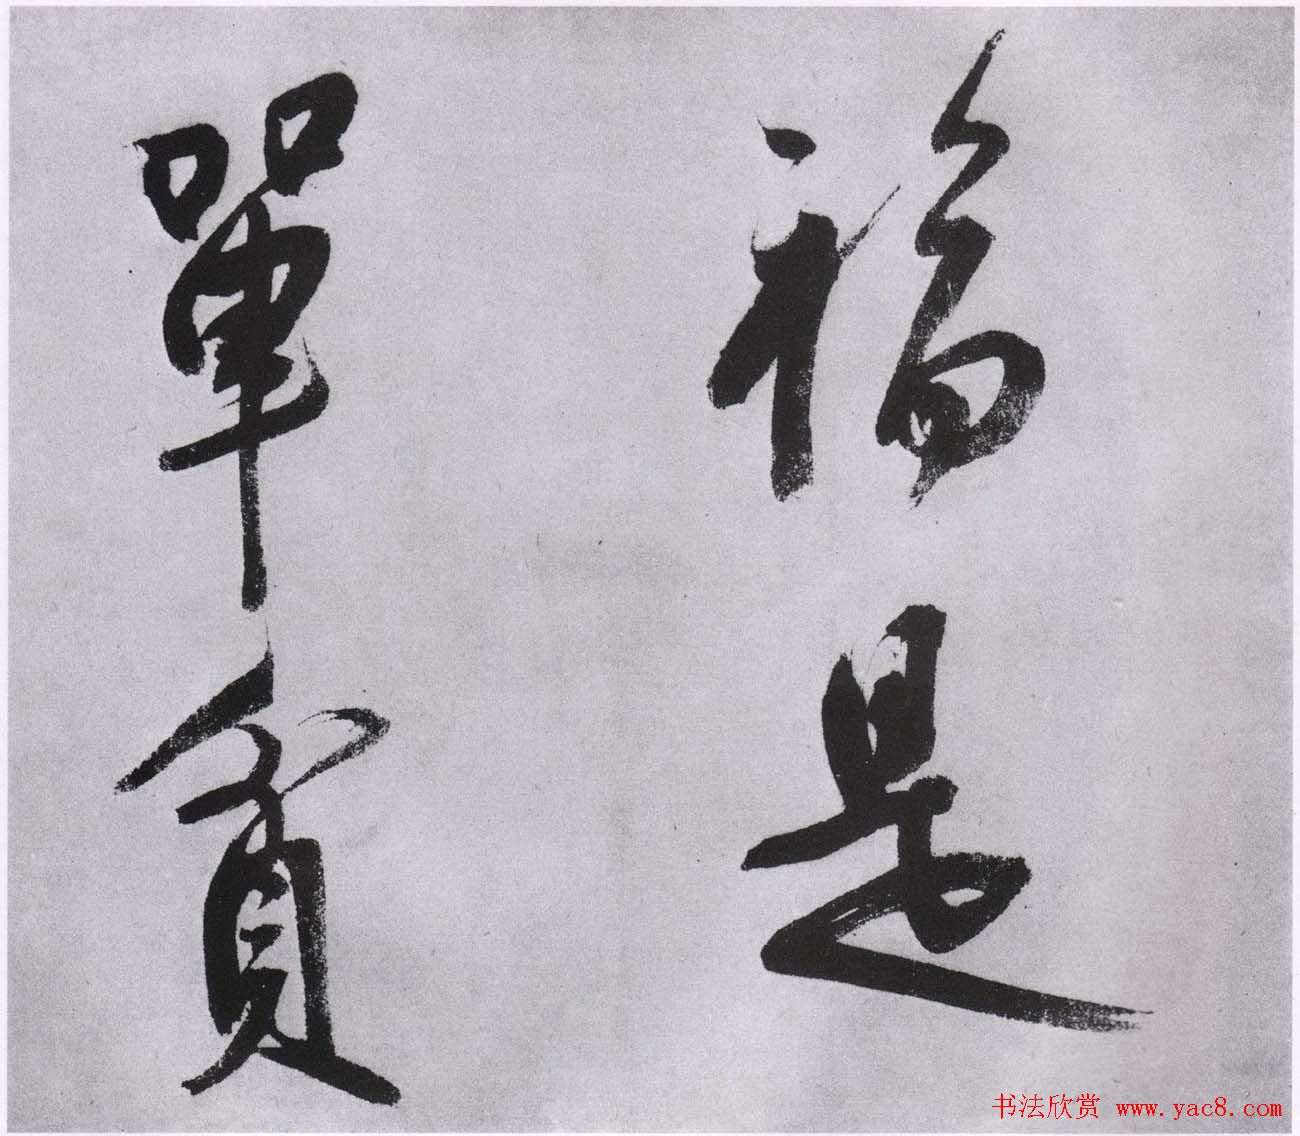 福是
單貧
书法欣赏 www.yac8.com